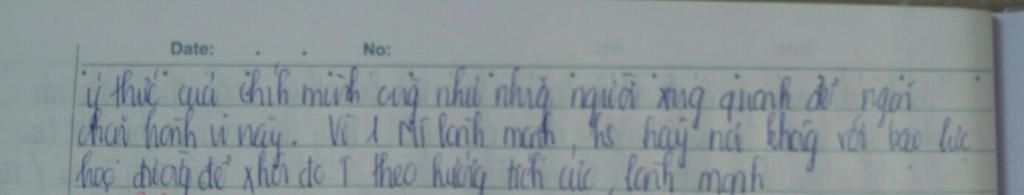 Date: . . No:
ý thức quả chih mình cũg như nhữg người xug quanh để ngăn
chặn hành vi này. Vì 1 MT lành mạnh, hs hãy nói khôg với bạo lực
học đườg để xhội đc T theo hướng tích cực, lành mạnh